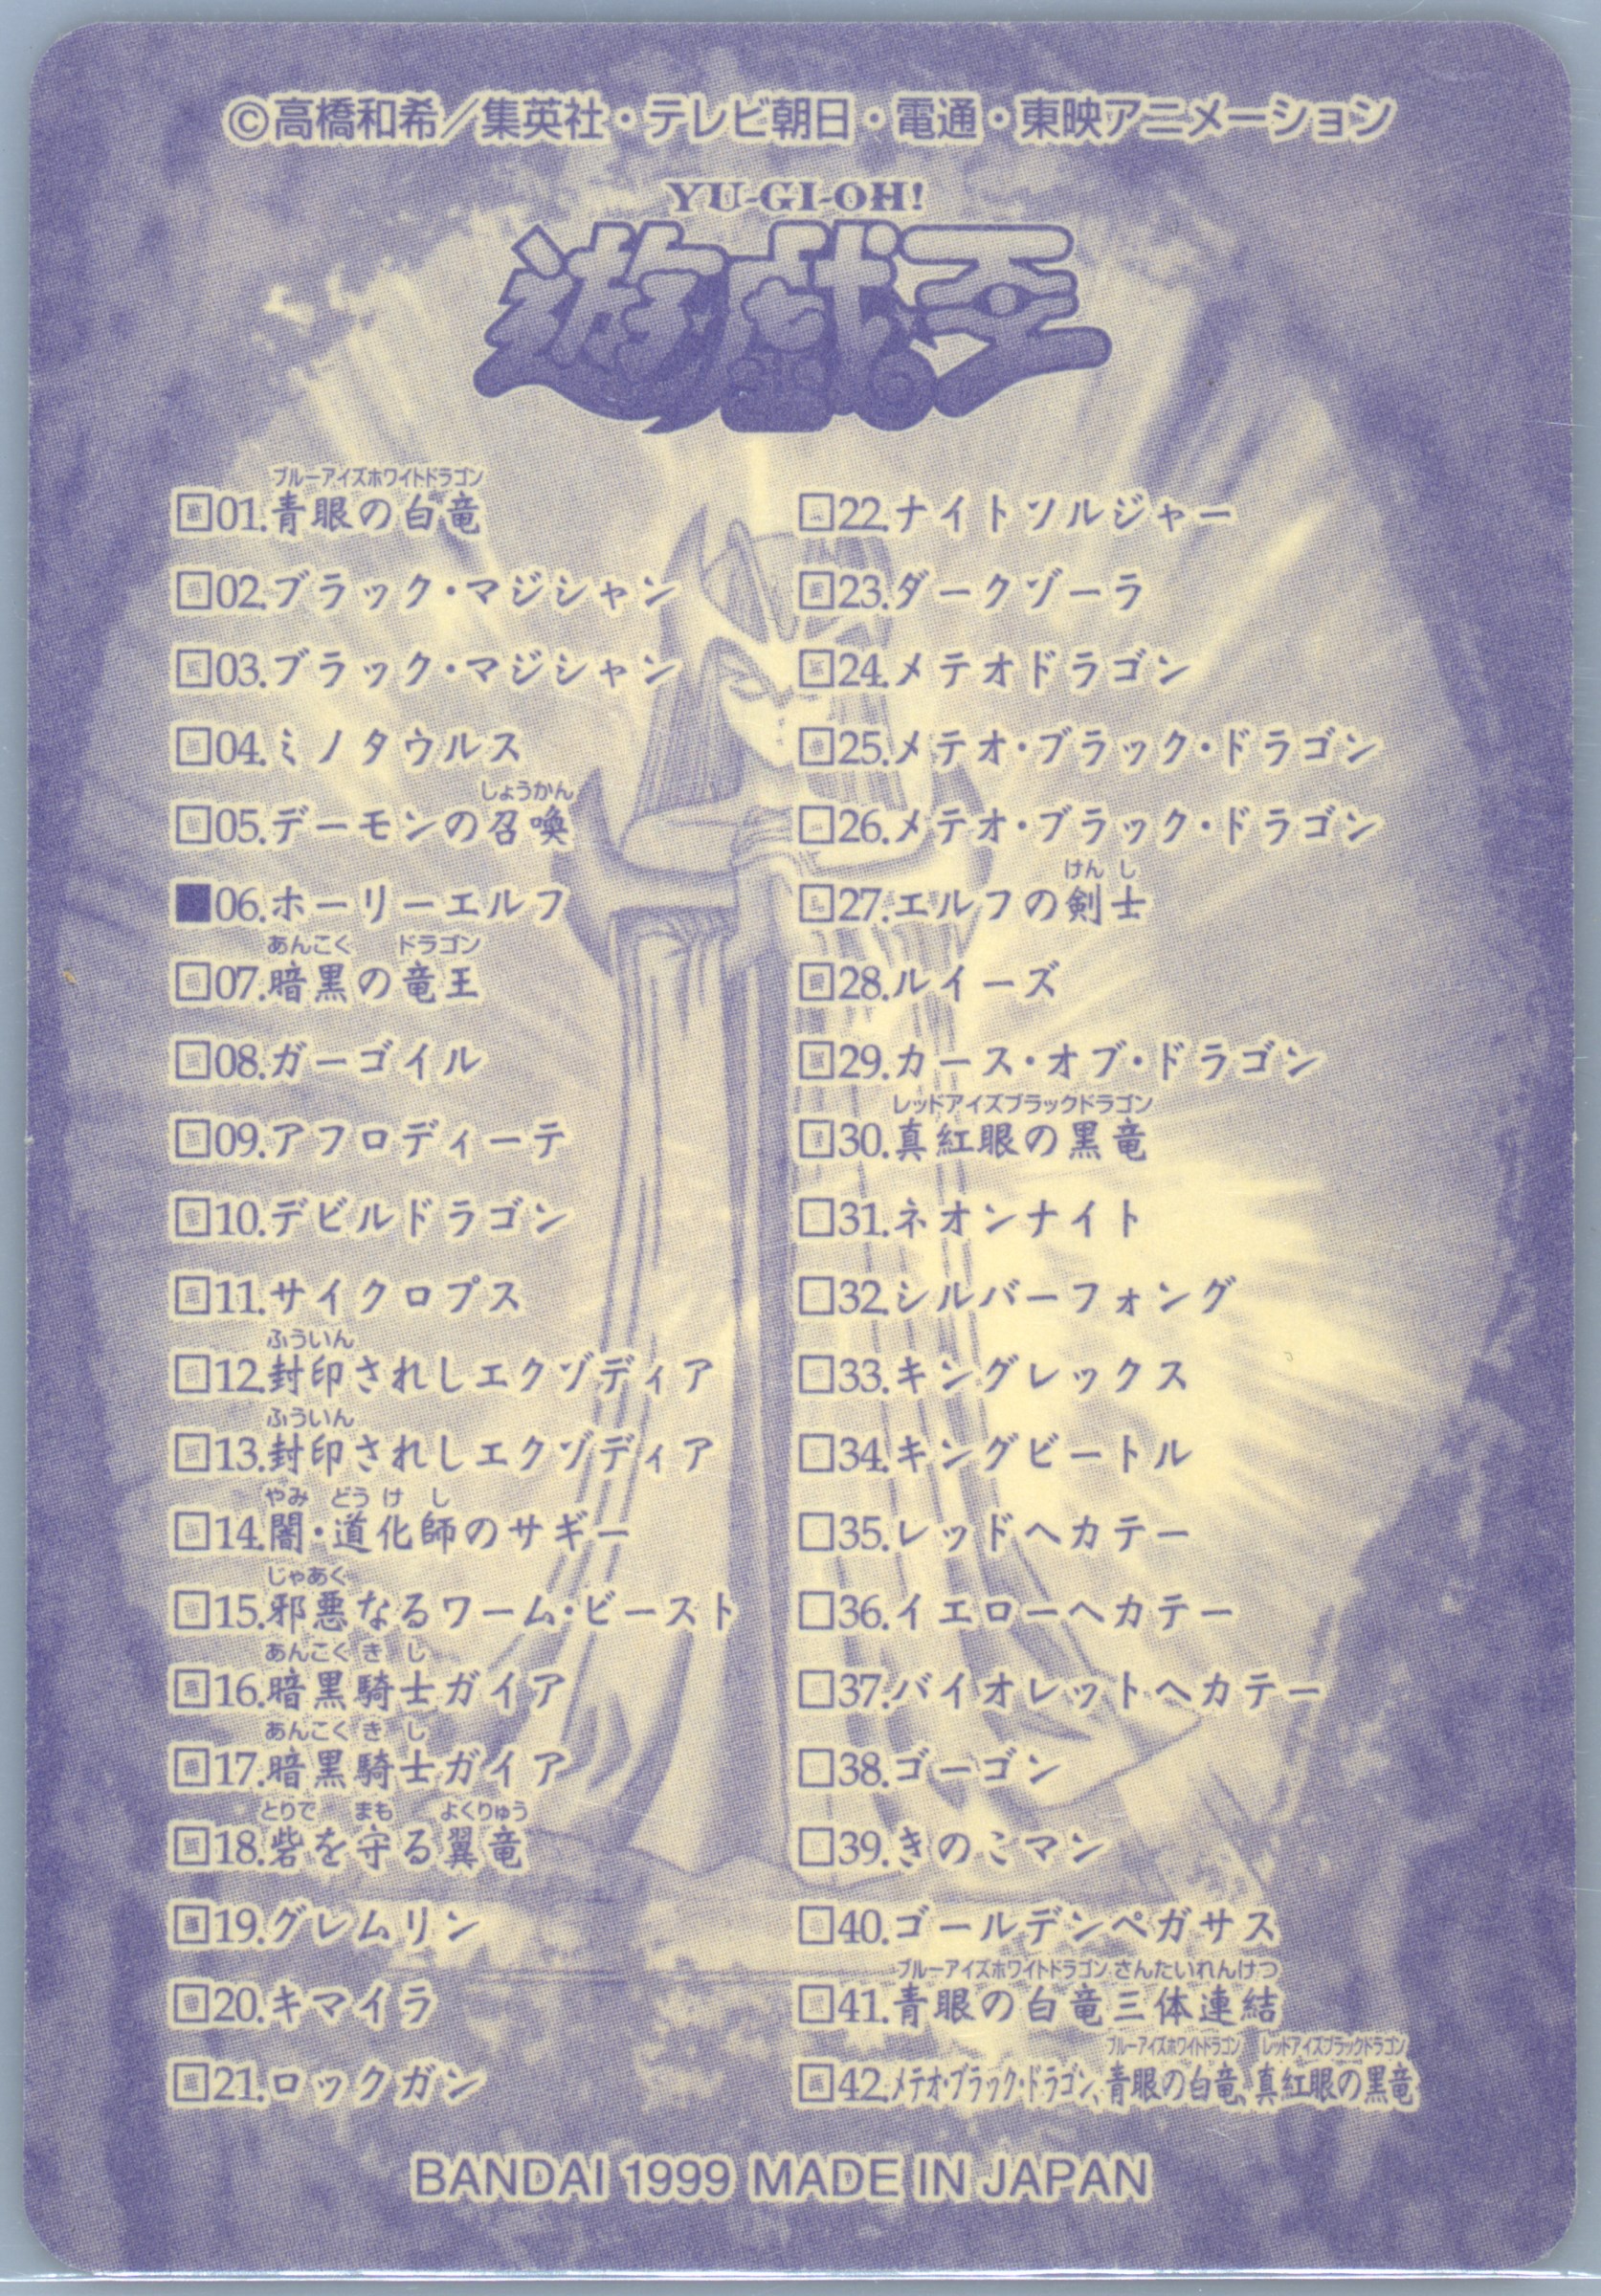 ©高橋和希／集英社・テレビ朝日・電通・東映アニメーション
YU-GI-OH!
遊戯王
ブルーアイズホワイトドラゴン
□01.青眼の白竜
□02.ブラック・マジシャン
□03.ブラック・マジシャン
□04.ミノタウルス
しょうかん
□05.デーモンの召喚
■06.ホーリーエルフ
あんこく ドラゴン
□07.暗黒の竜王
□08.ガーゴイル
□09.アフロディーテ
□10.デビルドラゴン
□11.サイクロプス
ふういん
□12.封印されしエクゾディア
ふういん
□13.封印されしエクゾディア
やみ どう け し
□14.闇・道化師のサギー
じゃあく
□15.邪悪なるワーム・ビースト
あんこく き し
□16.暗黒騎士ガイア
あんこく き し
□17.暗黒騎士ガイア
とりで まも よくりゅう
□18.砦を守る翼竜
□19.グレムリン
□20.キマイラ
□21.ロックガン
□22.ナイトソルジャー
□23.ダークゾーラ
□24.メテオドラゴン
□25.メテオ・ブラック・ドラゴン
□26.メテオ・ブラック・ドラゴン
けん し
□27.エルフの剣士
□28.ルイーズ
□29.カース・オブ・ドラゴン
レッドアイズブラックドラゴン
□30.真紅眼の黒竜
□31.ネオンナイト
□32.シルバーフォング
□33.キングレックス
□34.キングビートル
□35.レッドヘカテー
□36.イエローヘカテー
□37.バイオレットヘカテー
□38.ゴーゴン
□39.きのこマン
□40.ゴールデンペガサス
ブルーアイズホワイトドラゴン さんたいれんけつ
□41.青眼の白竜三体連結
ブルーアイズホワイトドラゴン レッドアイズブラックドラゴン
□42.メテオ・ブラック・ドラゴン、青眼の白竜、真紅眼の黒竜
BANDAI 1999 MADE IN JAPAN